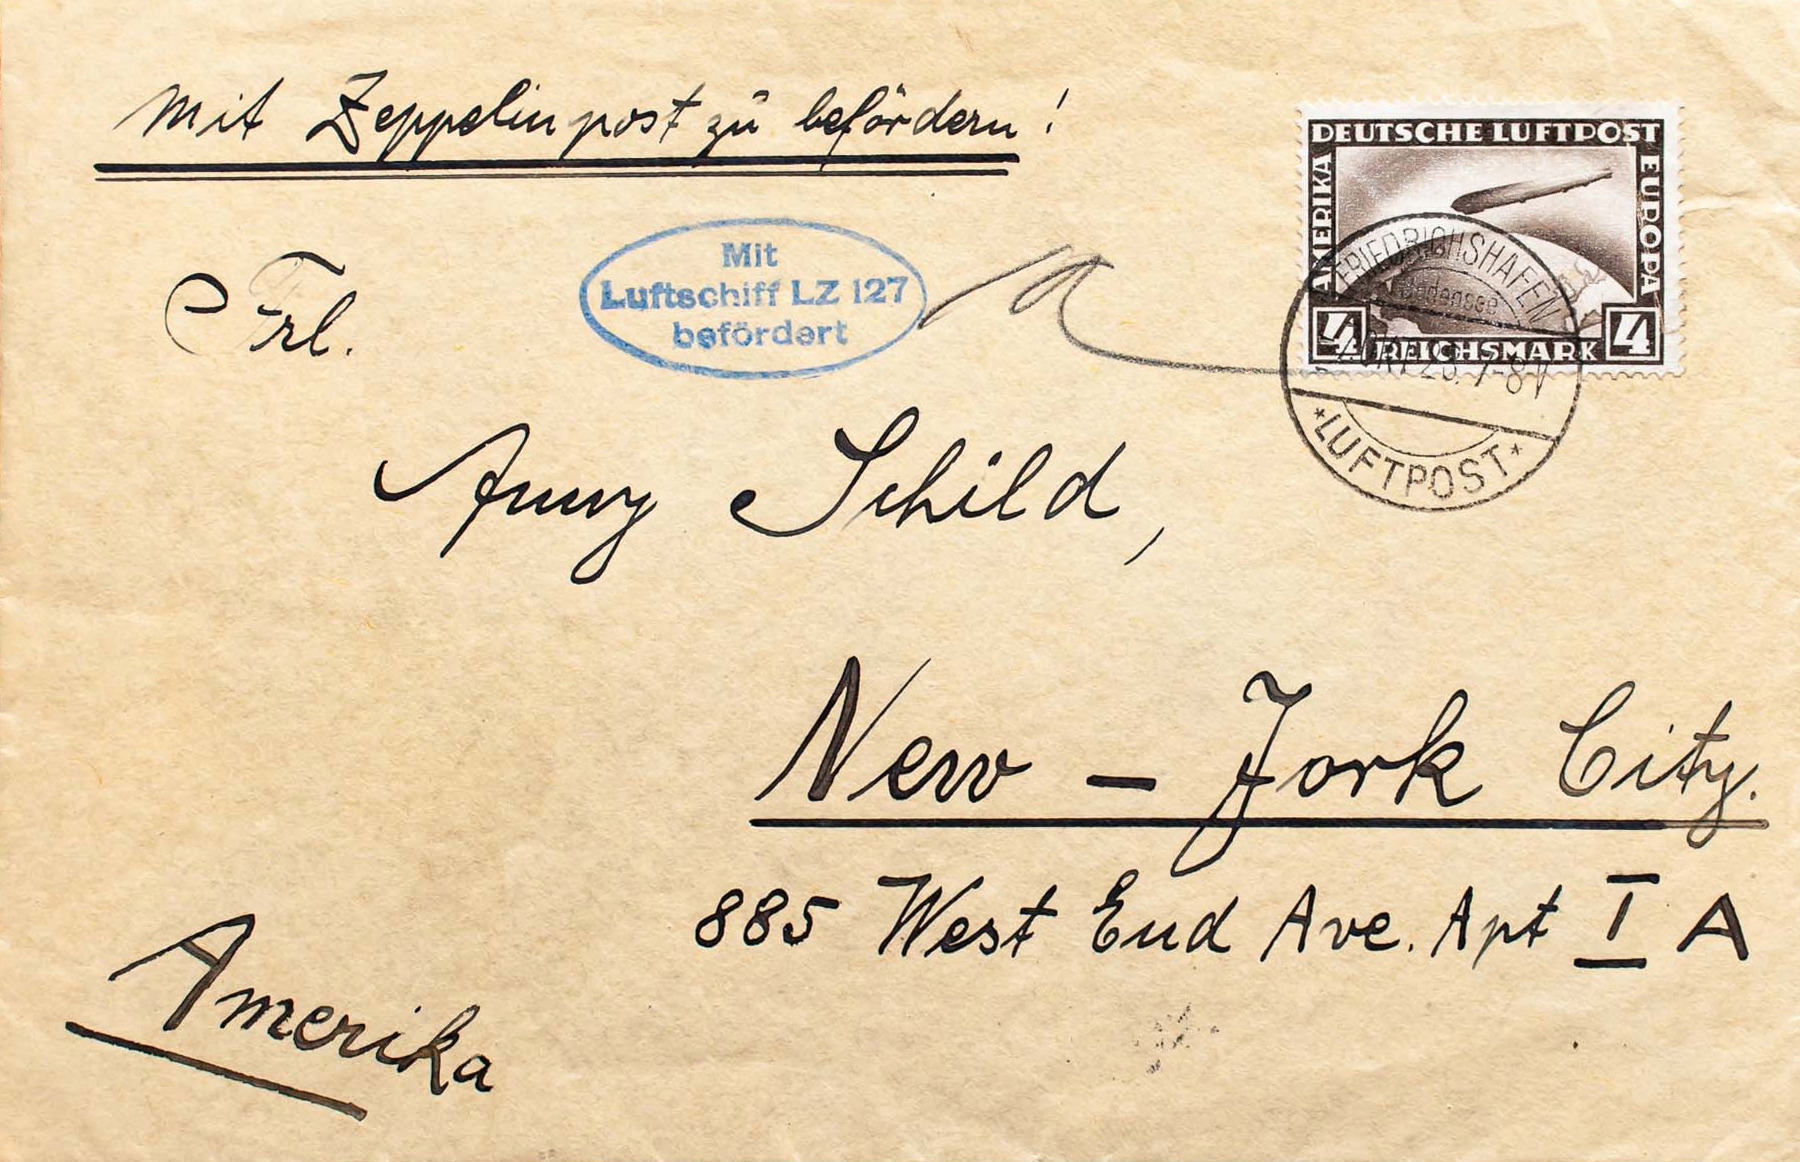 Mit Zeppelinpost zu befördern!
DEUTSCHE LUFTPOST
AMERIKA
EUROPA
4 REICHSMARK 4
FRIEDRICHSHAFEN
Bodensee
7-8V
*LUFTPOST*
Mit
Luftschiff LZ 127
befördert
Frl.
Anny Schild,
New - York City.
885 West End Ave. Apt I A
Amerika